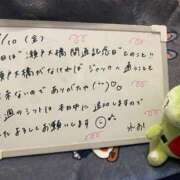 /10 (金)
日は"瀬戸大橋 開通記念日"とのことで
瀬戸大橋がなければジャッカへ通うこと
出来ないのでありがたや(´˘`)♡
週のシフトは 本日中に追加しますので
よろしくお願いします